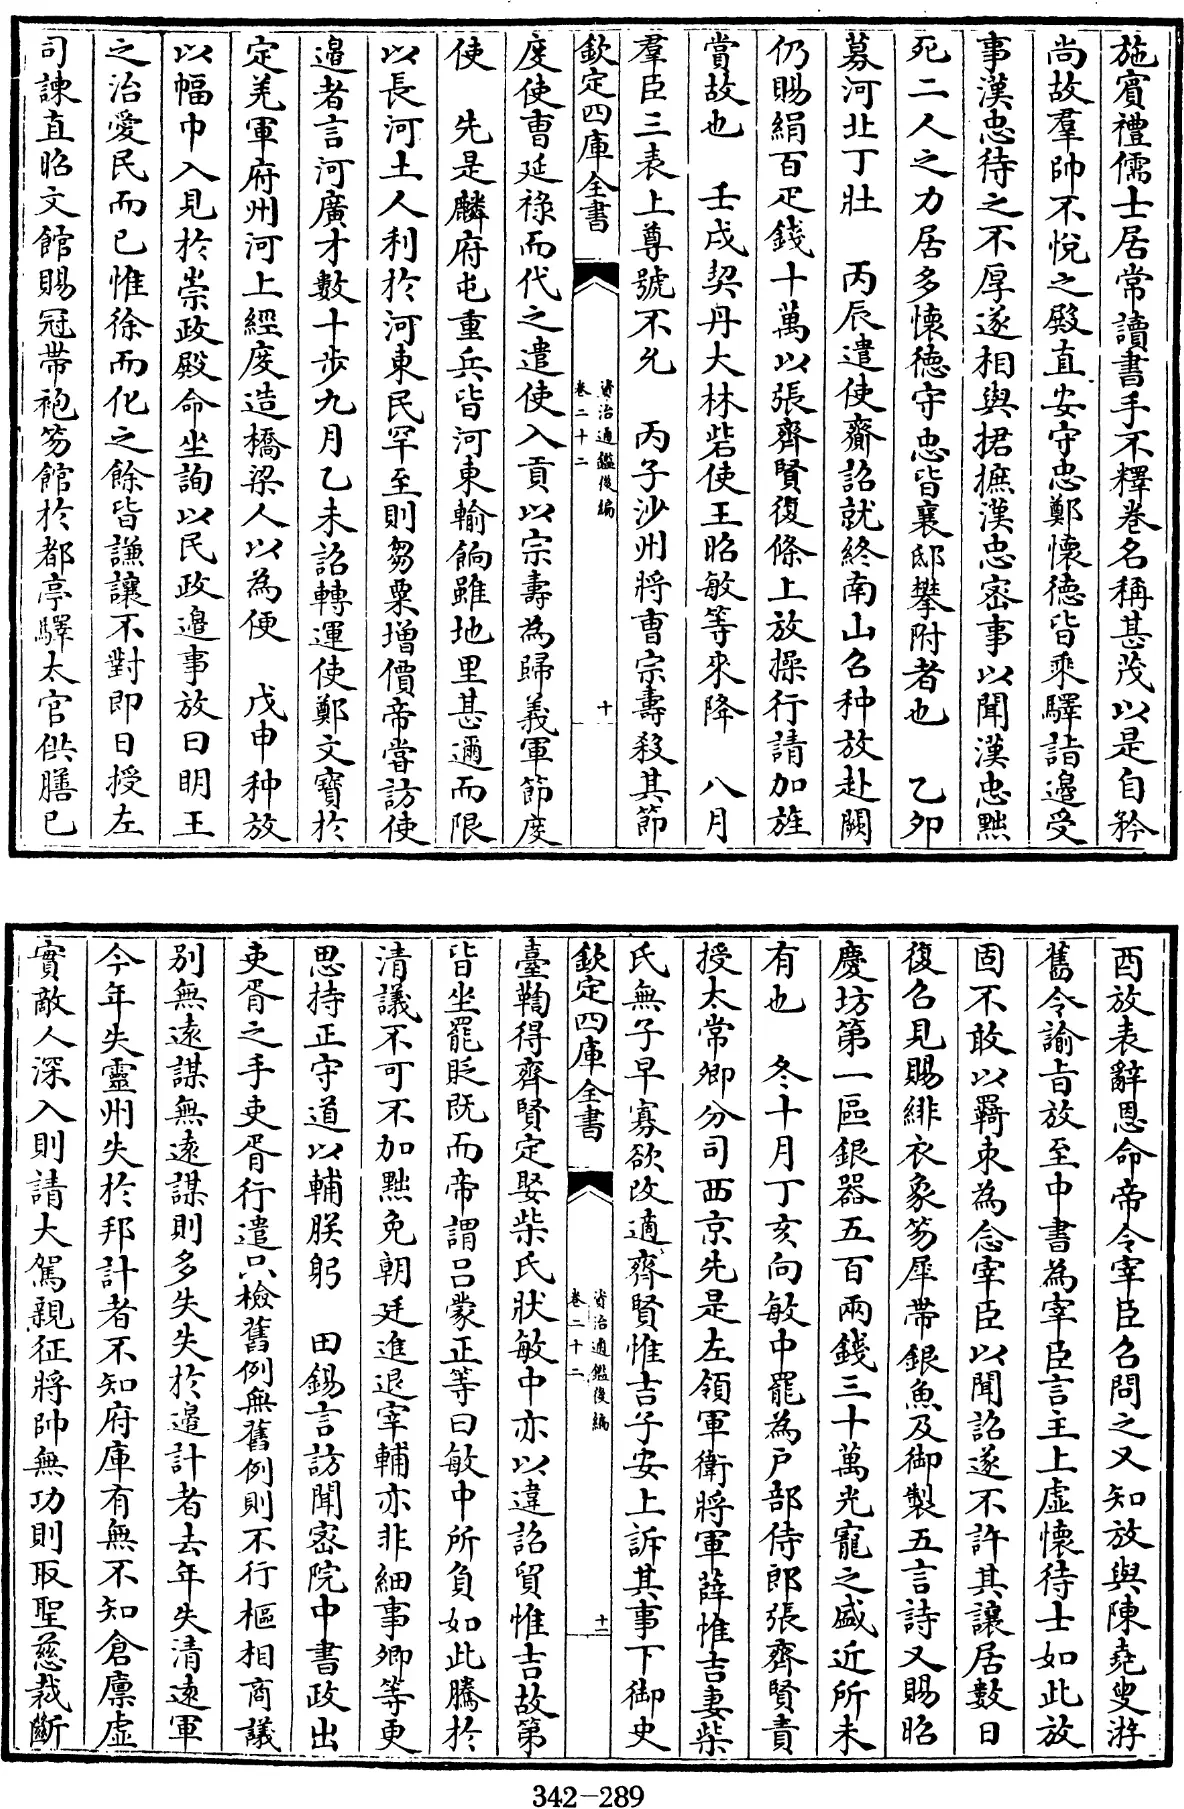 施賓禮儒士居常讀書手不釋卷名稱甚茂以是自矜
尚故羣帥不悅之殿直安守忠鄭懷德皆乘驛詣邊受
事漢忠待之不厚遂相與捃摭漢忠密事以聞漢忠黜
死二人之力居多懷德守忠皆襄邸攀附者也　乙卯
募河北丁壯　丙辰遣使齎詔就終南山召种放赴闕
仍賜絹百疋錢十萬以張齊賢復條上放操行請加旌
賞故也　壬戌契丹大林砦使王昭敏等來降　八月
羣臣三表上尊號不允　丙子沙州將曹宗壽殺其節
欽定四庫全書　資治通鑑後編卷二十二　十
度使曹延祿而代之遣使入貢以宗壽為歸義軍節度
使　先是麟府屯重兵皆河東輸餉雖地里甚邇而限
以長河土人利於河東民罕至則芻粟增價帝嘗訪使
邊者言河廣才數十步九月乙未詔轉運使鄭文寶於
定羌軍府州河上經度造橋梁人以為便　戊申种放
以幅巾入見於崇政殿命坐詢以民政邊事放曰明王
之治愛民而已惟徐而化之餘皆謙讓不對即日授左
司諫直昭文館賜冠帶袍笏館於都亭驛太官供膳已
酉放表辭恩命帝令宰臣召問之又知放與陳堯叟游
舊令諭旨放至中書為宰臣言主上虛懷待士如此放
固不敢以羇束為念宰臣以聞詔遂不許其讓居數日
復召見賜緋衣象笏犀帶銀魚及御製五言詩又賜昭
慶坊第一區銀器五百兩錢三十萬光寵之盛近所未
有也　冬十月丁亥向敏中罷為戶部侍郎張齊賢責
授太常卿分司西京先是左領軍衛將軍薛惟吉妻柴
氏無子早寡欲改適齊賢惟吉子安上訴其事下御史
欽定四庫全書　資治通鑑後編卷二十二　十一
臺鞫得齊賢定娶柴氏狀敏中亦以違詔貿惟吉故第
皆坐罷貶既而帝謂呂蒙正等曰敏中所負如此騰於
清議不可不加黜免朝廷進退宰輔亦非細事卿等更
思持正守道以輔朕躬　田錫言訪聞密院中書政出
吏胥之手吏胥行遣只檢舊例無舊例則不行樞相商議
別無遠謀無遠謀則多失失於邊計者去年失清遠軍
今年失靈州失於邦計者不知府庫有無不知倉廩虛
實敵人深入則請大駕親征將帥無功則取聖慈裁斷
342-289